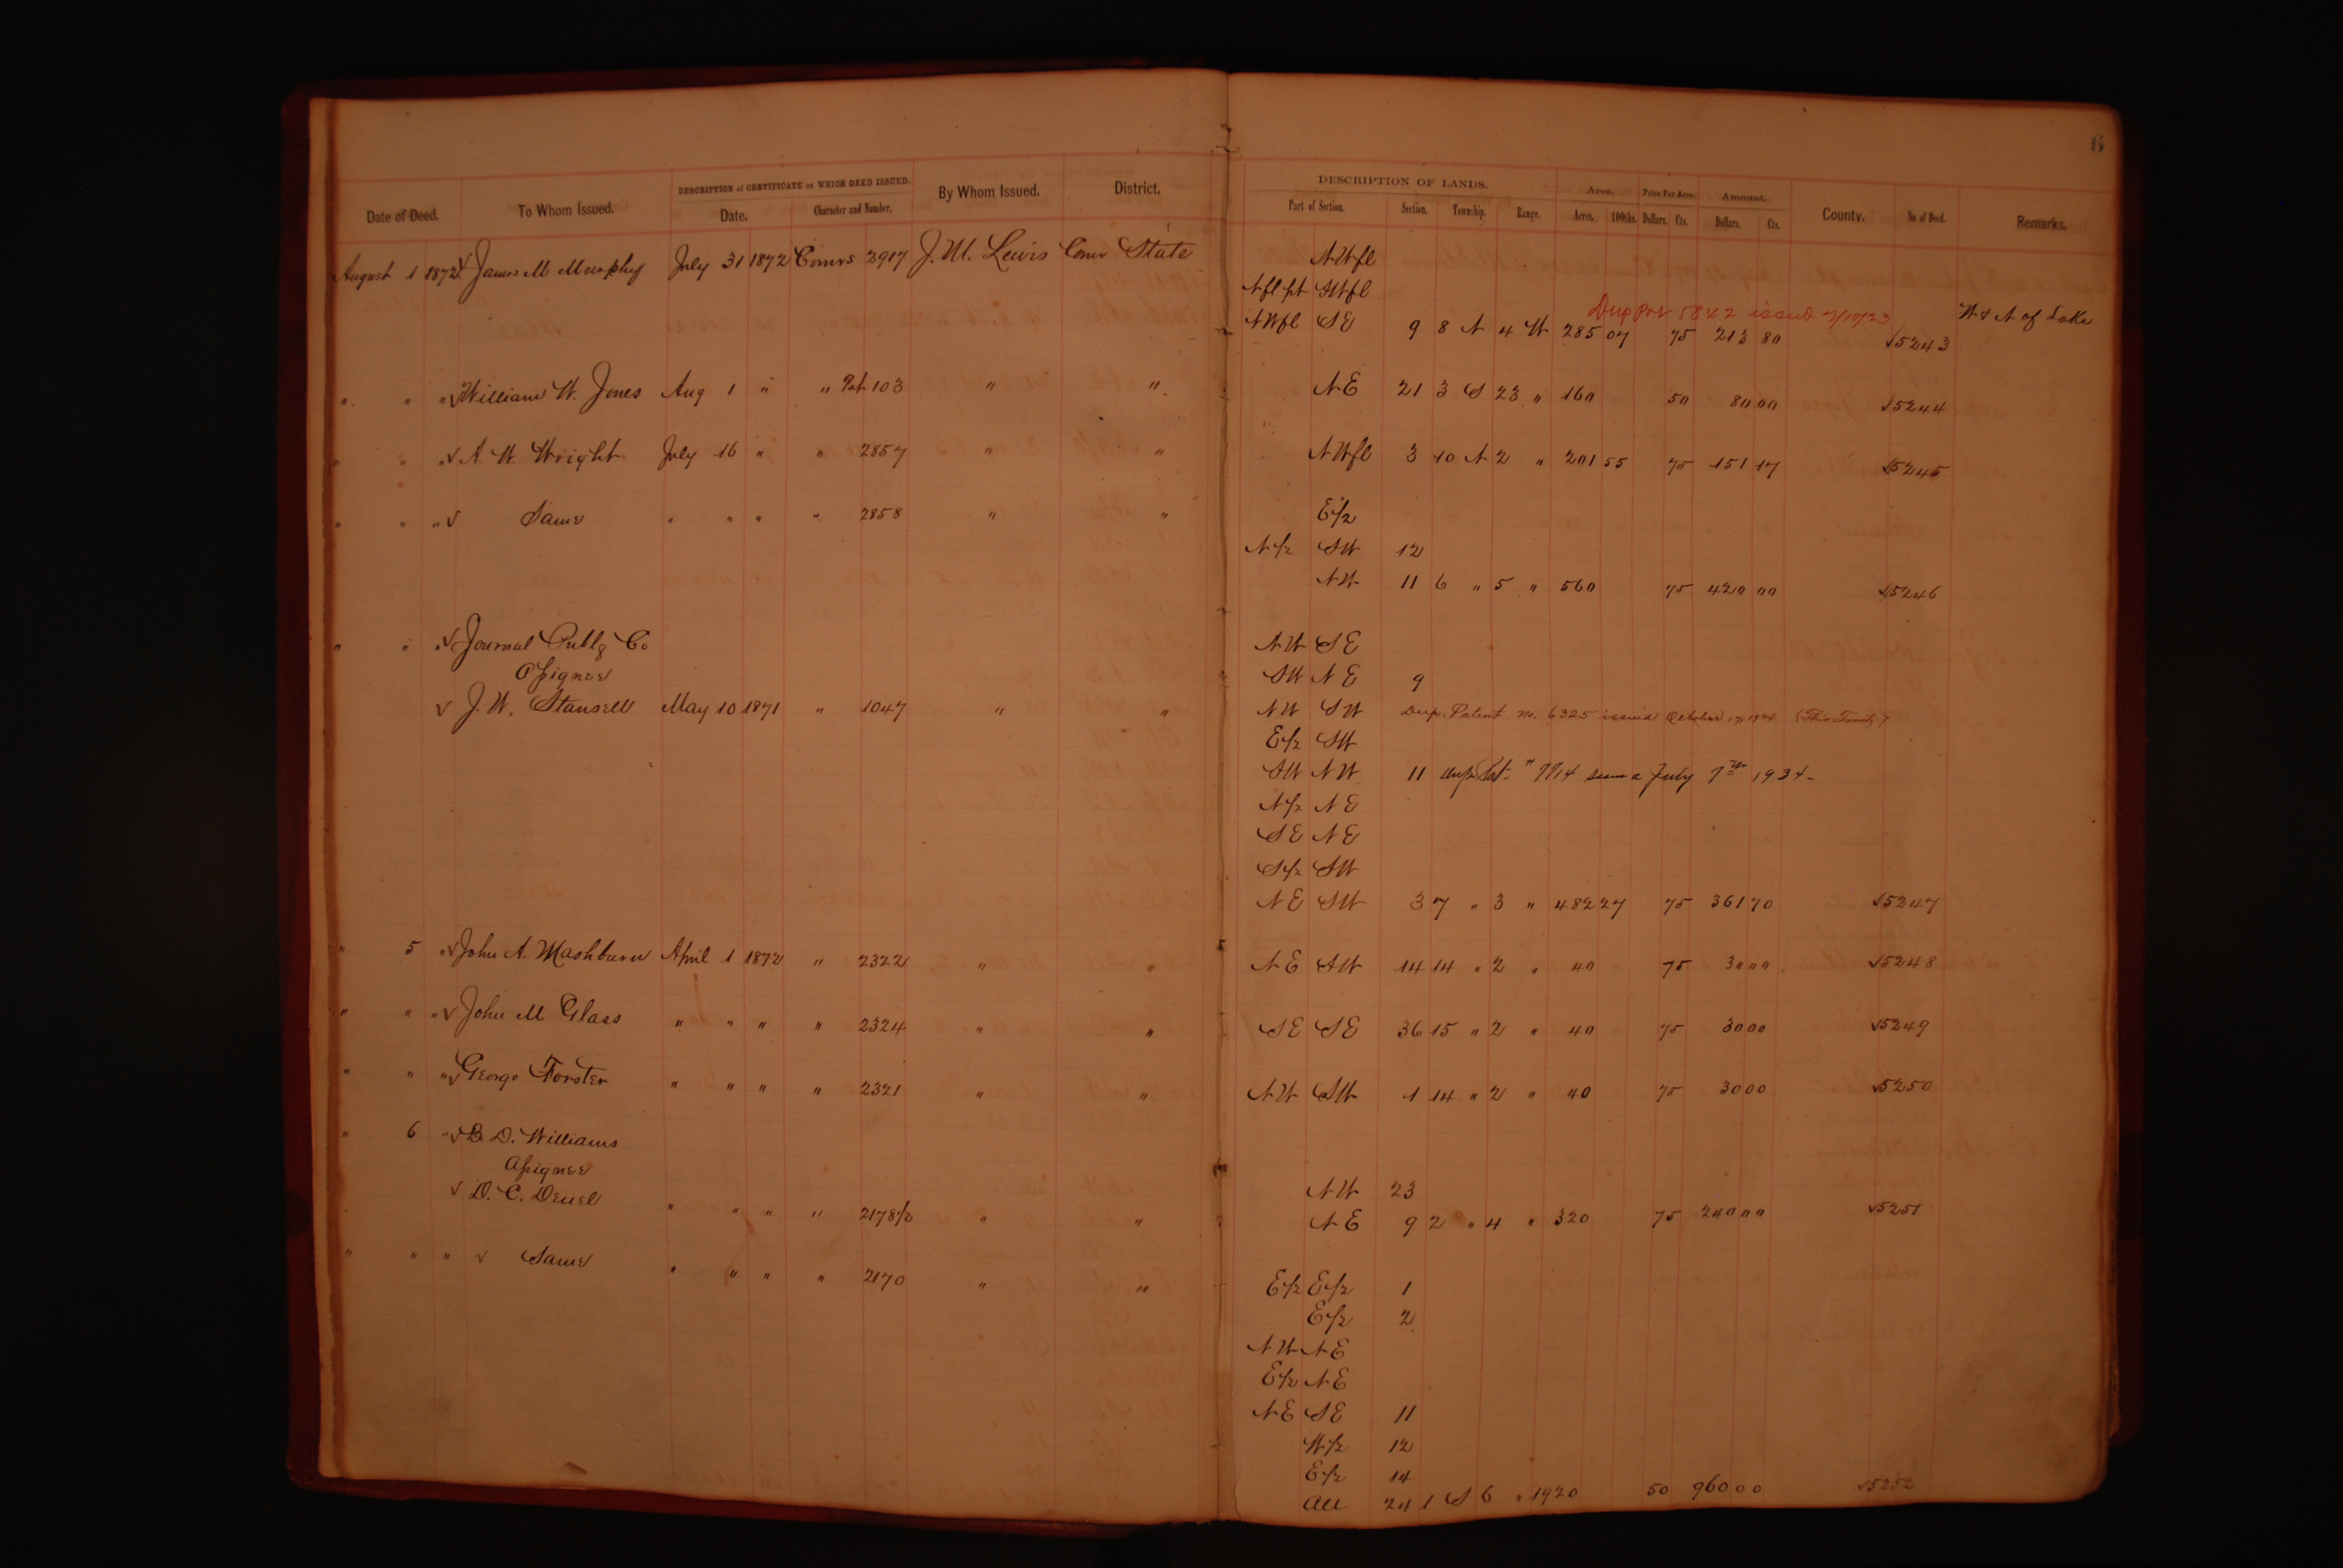 6
DESCRIPTION of CERTIFICATE on WHICH DEED ISSUED.
Date of Deed. To Whom Issued. Date. Character and Number. By Whom Issued. District.
DESCRIPTION OF LANDS. Area. Price Per Acre. Amount.
Part of Section. Section. Township. Range. Acres. 100ths. Dollars. Cts. Dollars. Cts. County. No. of Deed. Remarks.
August 1 1872 √ James M Murphy July 31 1872 Comrs 2917 J. M. Lewis Comr State NW fl
N fl pt SW fl
Dup Pat 5842 issued
NW fl SE 9 8 N 4 W 285 07 75 213 80 √5243 W & N of Lake
" " " √ William W. Jones Aug 1 " " Pat 103 " " NE 21 3 S 23 " 160 50 80 00 √5244
" " " √ A. W. Wright July 16 " " 2857 " " NW fl 3 10 N 2 " 201 55 75 151 17 √5245
" " " √ Same " " " " 2858 " " E 1/2
N 1/2 SW 12
NW 11 6 " 5 " 560 75 420 00 √5246
" " " √ Journal Publg Co NW SE
Assignee SW NE 9
√ J. W. Stansell May 10 1871 " 1047 " " NW SW Dup. Patent No. 6325 issued October 17, 1924 (This Tract)
E 1/2 SW
SW NW 11 dup Pat. " 7714 July 7th 1934
N 1/2 NE
SE NE
S 1/2 SW
NE SW 3 7 " 3 " 482 27 75 361 70 √5247
" 5 " √ John A. Mashburn April 1 1872 " 2322 " " NE SW 14 14 " 2 " 40 75 30 00 √5248
" " " √ John M Glass " " " " 2324 " " SE SE 36 15 " 2 " 40 75 30 00 √5249
" " " √ George Forster " " " " 2321 " " NW SW 1 14 " 2 " 40 75 30 00 √5250
" 6 " √ B. D. Williams
Assignee NW 23
√ D. C. Deuel " " " " 2178 1/2 " " NE 9 2 " 4 " 320 75 240 00 √5251
" " " √ Same " " " " 2170 " " E 1/2 E 1/2 1
E 1/2 2
NW NE
E 1/2 NE
NE SE 11
W 1/2 12
E 1/2 14
All 24 1 S 6 " 1920 50 960 00 √5252